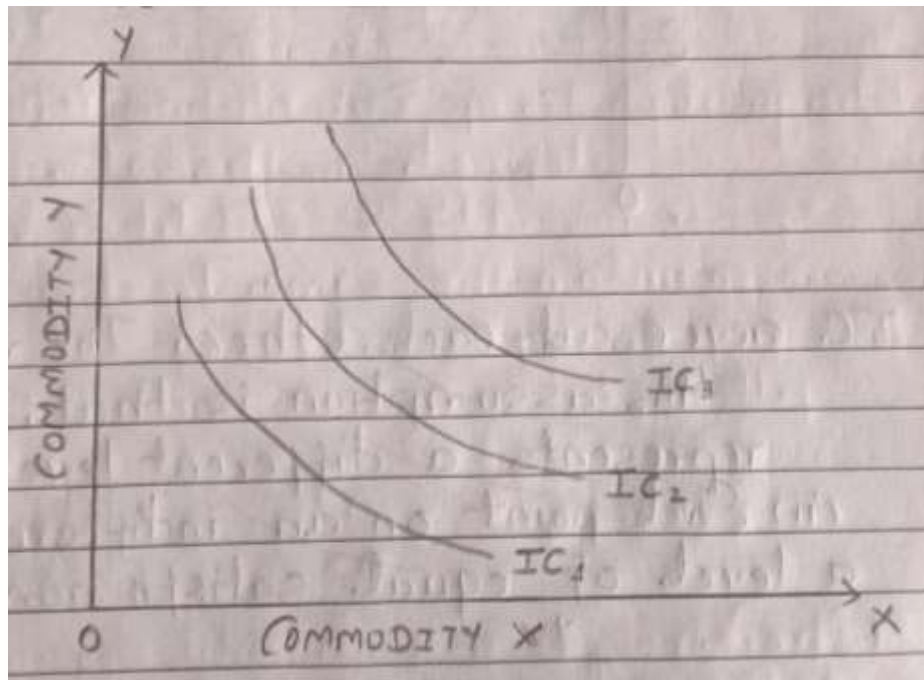 Y
COMMODITY Y
IC3
IC2
IC1
O
COMMODITY X
X